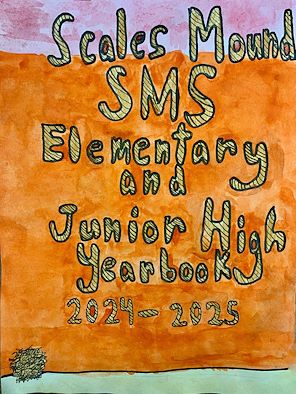 Scales Mound
SMS
Elementary
and
Junior High
Yearbook
2024-2025